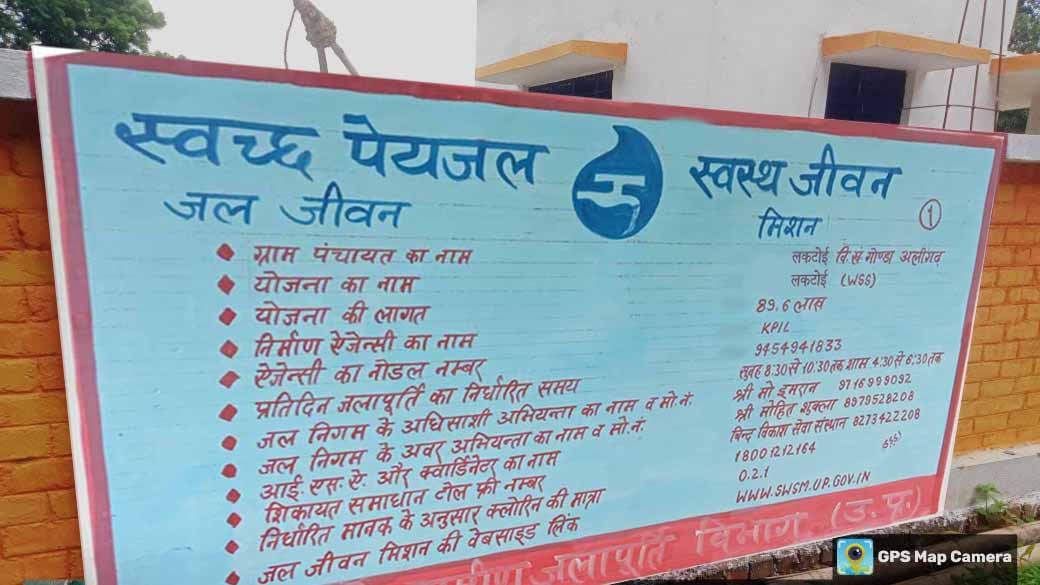 स्वच्छ पेयजल स्वस्थ जीवन
जल जीवन मिशन
1
ग्राम पंचायत का नाम लकटोई वि.सं गोण्डा अलीगढ़
योजना का नाम लकटोई (WSS)
योजना की लागत 89.6 लाख
निर्माण ऐजेन्सी का नाम KPIL
ऐजेन्सी का नोडल नम्बर 9454941833
प्रतिदिन जलापूर्ति का निर्धारित समय सुबह 8.30 से 10.30 तक शाम 4.30 से 6.30 तक
जल निगम के अधिसाशी अभियन्ता का नाम व मो.नं. श्री मो इमरान 9716999092
जल निगम के अवर अभियन्ता का नाम व मो.नं. श्री मोहित शुक्ला 8979528208
आई.एस.ए. और क्वार्डिनेटर का नाम बिन्द विकाश सेवा संस्थान 8273422208
शिकायत समाधान टोल फ्री नम्बर 18001212164
निर्धारित मानक के अनुसार क्लोरिन की मात्रा 0.2.1
जल जीवन मिशन की वेबसाइड लिंक WWW.SWSM.UP.GOV.IN
जलापूर्ति विभाग (उ.प्र.)
GPS Map Camera